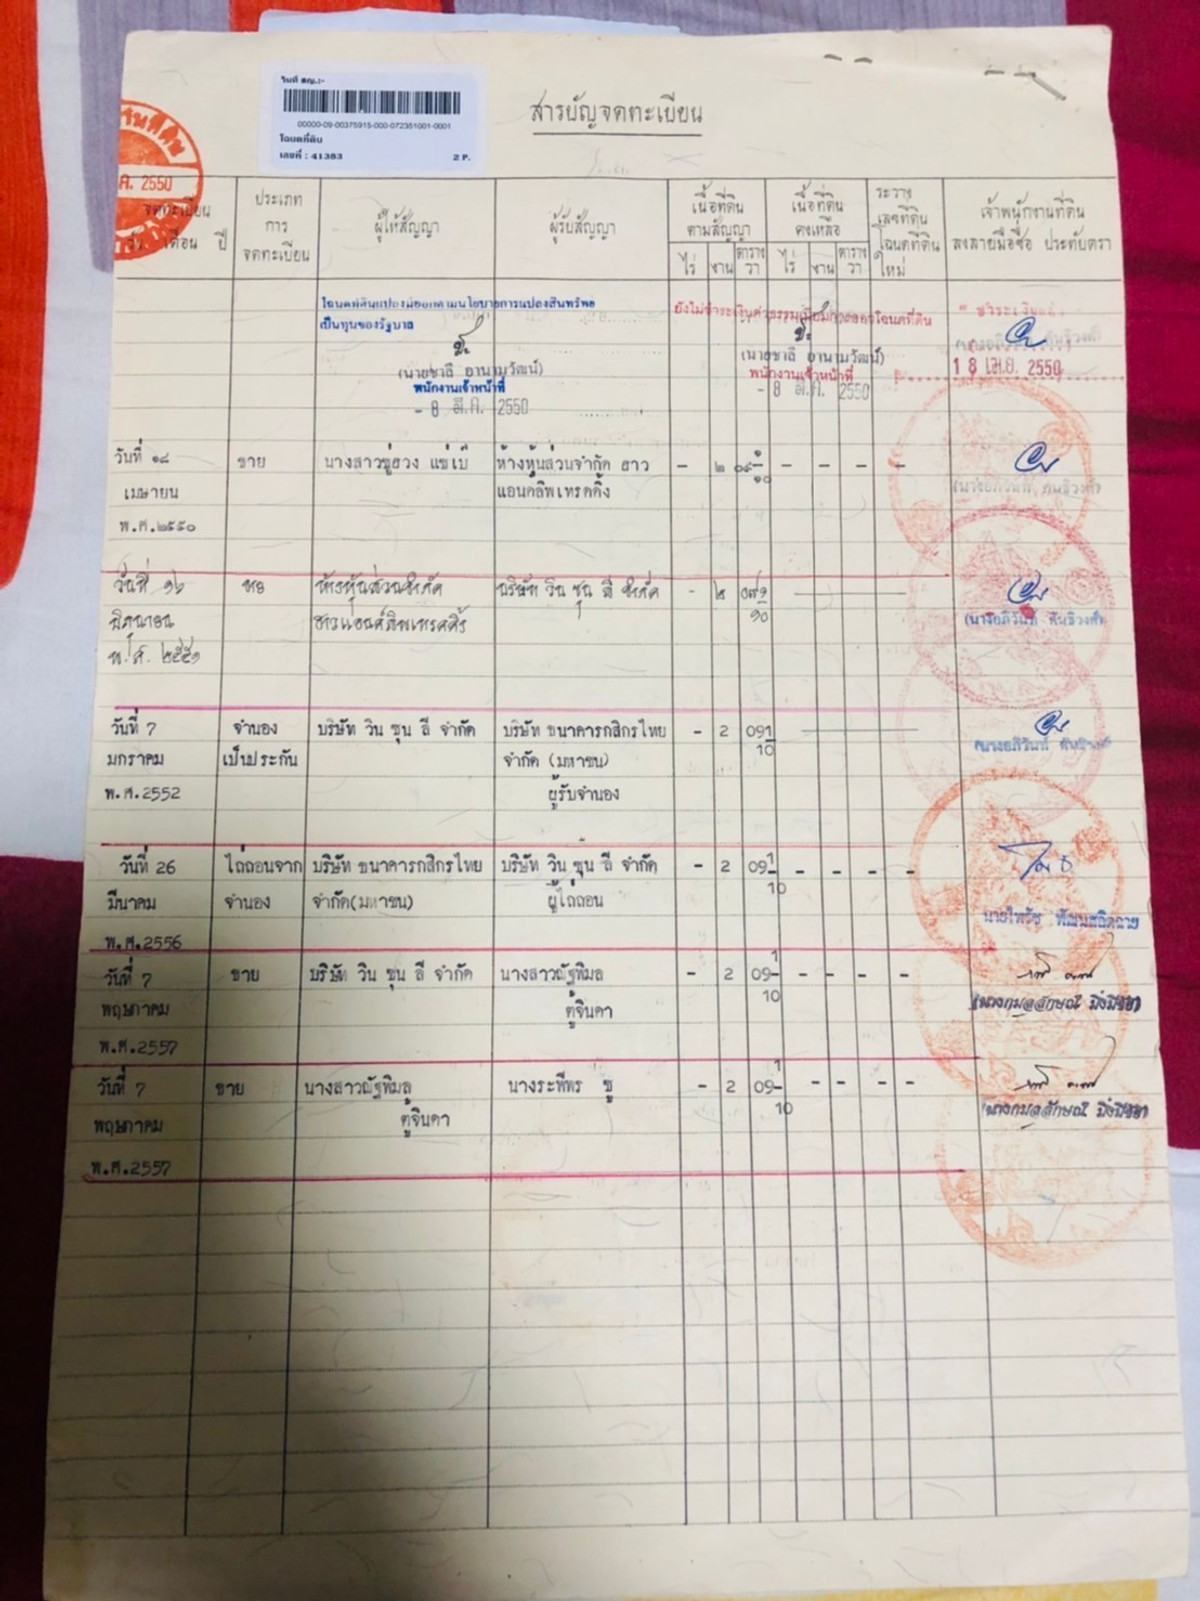 วันที่ สญ.:-
00000-09-00375915-000-072351001-0001
โฉนดที่ดิน
เลขที่ : 41383 2 P.
สารบัญจดทะเบียน
2550
จดทะเบียน
วัน เดือน ปี
ประเภท
การ
จดทะเบียน
ผู้ให้สัญญา
ผู้รับสัญญา
เนื้อที่ดิน
ตามสัญญา
ไร่ งาน ตาราง
วา
เนื้อที่ดิน
คงเหลือ
ไร่ งาน ตาราง
วา
ระวาง
เลขที่ดิน
โฉนดที่ดิน
ใหม่
เจ้าพนักงานที่ดิน
ลงลายมือชื่อ ประทับตรา
โฉนดที่ดินแปลงนี้ออกตามนโยบายการแปลงสินทรัพย์
เป็นทุนของรัฐบาล
(นายชาลี อานามวัฒน์)
พนักงานเจ้าหน้าที่
- 8 มี.ค. 2550
ยังไม่ชำระเงินค่าธรรมเนียมการออกโฉนดที่ดิน
(นายชาลี อานามวัฒน์)
พนักงานเจ้าหน้าที่
- 8 มี.ค. 2550
18 เม.ย. 2550
วันที่ ๑๘ ขาย นางสาวซู่ฮวง แซ่เบ๊ ห้างหุ้นส่วนจำกัด ฮาว - ๒ ๐๙ ๑/๑๐ - - - -
เมษายน แอนด์ลิพเทรดดิ้ง
พ.ศ.๒๕๕๐
วันที่ ๑๖ ขาย ห้างหุ้นส่วนจำกัด บริษัท วิน ซุน ลี จำกัด - ๒ ๐๙ ๑/๑๐
มิถุนายน ฮาวแอนด์ลิพเทรดดิ้ง
พ.ศ. ๒๕๕๑
(นางอภิวันท์ คันธิวงศ์)
วันที่ 7 จำนอง บริษัท วิน ซุน ลี จำกัด บริษัท ธนาคารกสิกรไทย - 2 09 1/10
มกราคม เป็นประกัน จำกัด (มหาชน)
พ.ศ.2552 ผู้รับจำนอง
วันที่ 26 ไถ่ถอนจาก บริษัท ธนาคารกสิกรไทย บริษัท วิน ซุน ลี จำกัด - 2 09 1/10 - - - -
มีนาคม จำนอง จำกัด(มหาชน) ผู้ไถ่ถอน
พ.ศ.2556
วันที่ 7 ขาย บริษัท วิน ซุน ลี จำกัด นางสาวณัฐพิมล - 2 09 1/10 - - - -
พฤษภาคม ตู้จินดา
พ.ศ.2557
(นางกมลลักษณ์ มิ่งมีชัย)
วันที่ 7 ขาย นางสาวณัฐพิมล นางระพีพร ซู - 2 09 1/10 - - - -
พฤษภาคม ตู้จินดา
พ.ศ.2557
(นางกมลลักษณ์ มิ่งมีชัย)